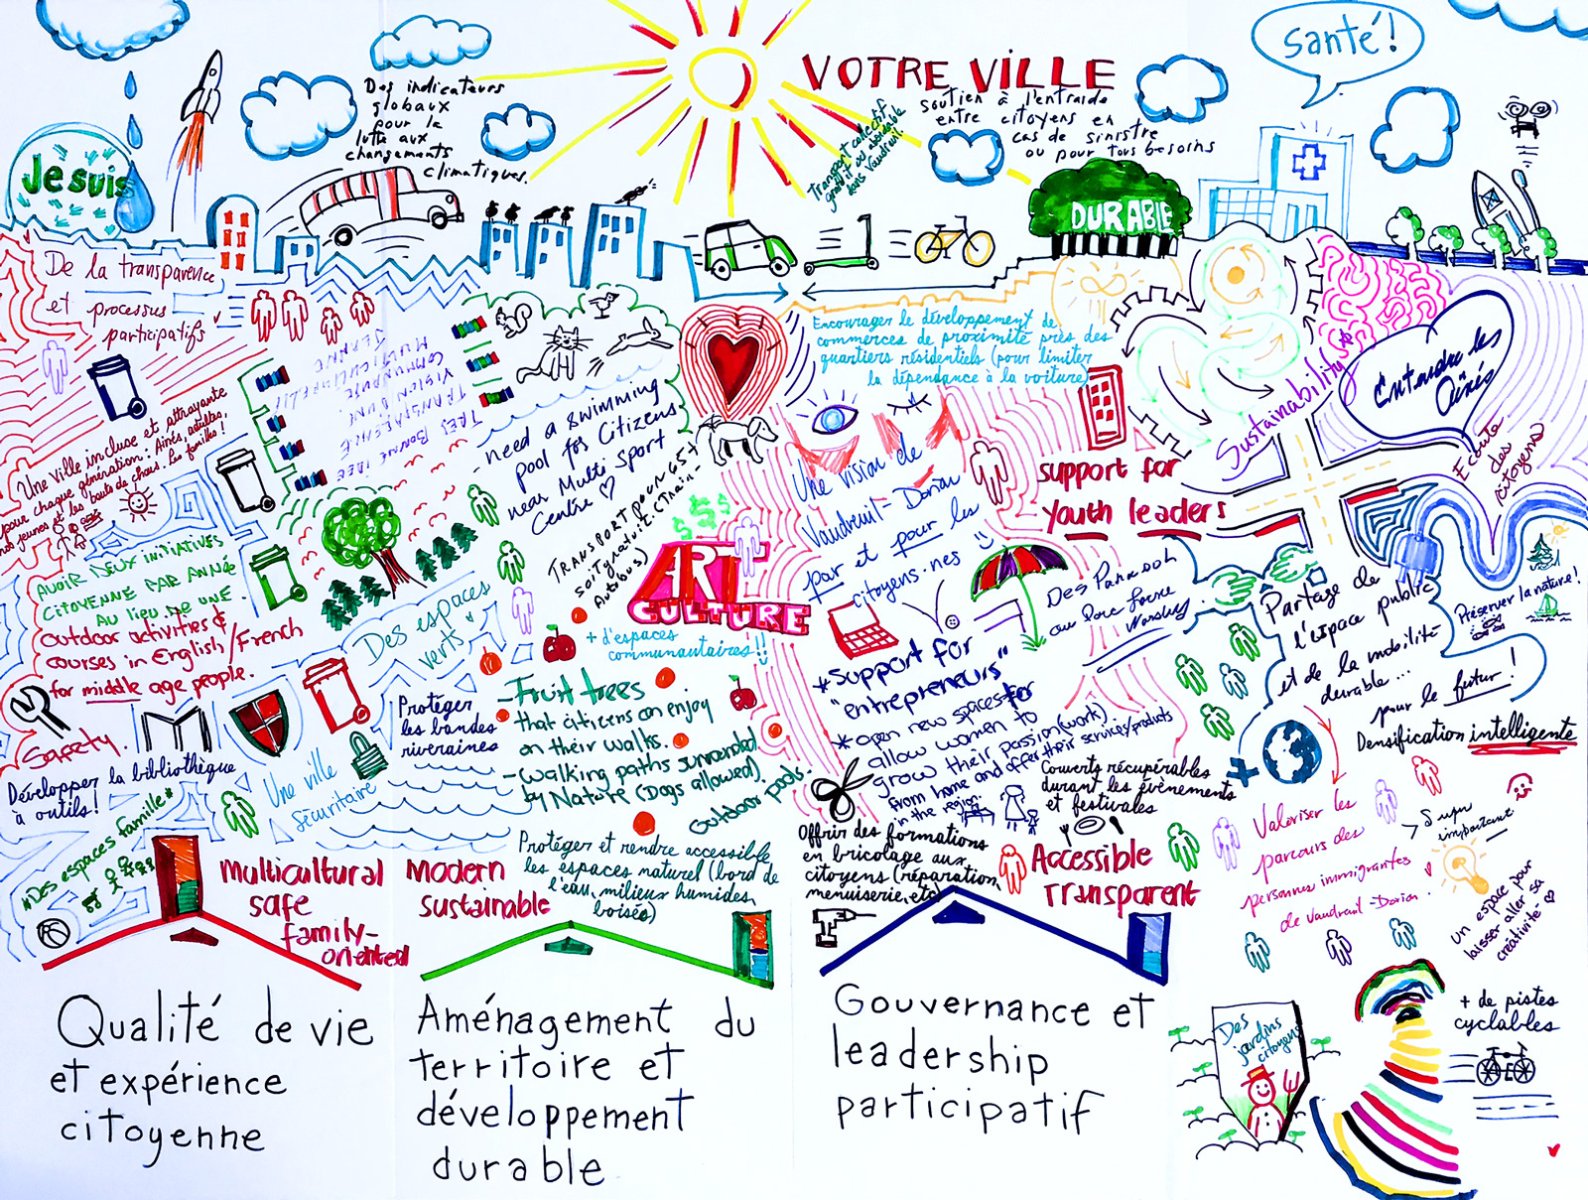 santé!
VOTRE VILLE
Des indicateurs
globaux
pour la
lutte aux
changements
climatiques.
Transport collectif
gratuit ou abordable
dans Vaudreuil.
soutien à l'entraide
entre citoyens en
cas de sinistre
ou pour tous besoins
Je suis
DURABLE
De la transparence
et processus
participatifs
Une ville incluse et attrayante
pour chaque génération: Ainés, adultes,
nos jeunes et les bouts de chous. Les familles!
MULTICULTURELLE
COMMUNAUTÉ
VISION D'UNE
TRÈS BONNE IDÉE
AVOIR DEUX INITIATIVES
CITOYENNE PAR ANNÉE
AU LIEU DE UNE.
outdoor activities &
courses in English/French
for middle age people.
Safety.
Développer la bibliothèque
à outils!
*Des espaces famille*
Une ville
Sécuritaire
Des espaces
verts
Protéger
les bandes
riveraines
- need a swimming
pool for Citizens
near Multi Sport
Centre ♡
TRANSPORT POUR 65+
soit gratuit. (Train-
Autobus)
$$$
ART
CULTURE
+ d'espaces
communautaires!!
- Fruit trees
that citizens can enjoy
on their walks.
- walking paths surrounded
by Nature (Dogs allowed).
outdoor pools.
Protéger et rendre accessible
les espaces naturel (bord de
l'eau, milieux humides,
boisés)
Encourager le développement de
commerces de proximité près des
quartiers résidentiels (pour limiter
la dépendance à la voiture)
Une vision de
Vaudreuil-Dorion
par et pour les
citoyens.nes
support for
youth leaders
*support for
"entrepreneurs"
*open new spaces for
allow women to
grow their passion (work)
from home and offer their services/products
in the region.
Offrir des formations
en bricolage aux
citoyens (réparation,
menuiserie, etc)
Couverts récupérables
durant les évènements
et festivales
Accessible
Transparent
Sustainability
Entendre les
Ainés
Ecoute
des
citoyens
Partage de
l'espace public
et de la mobilité
durable...
Préserver la nature!
pour le futur!
Densification intelligente
Valoriser les
parcours des
personnes immigrantes
de Vaudreuil-Dorion
> Super
important
un espace pour
laisser aller sa
créativité
Multicultural
safe
family-
oriented
Modern
sustainable
Des
jardins
citoyens
+ de pistes
cyclables
Qualité de vie
et expérience
citoyenne
Aménagement du
territoire et
développement
durable
Gouvernance et
leadership
participatif